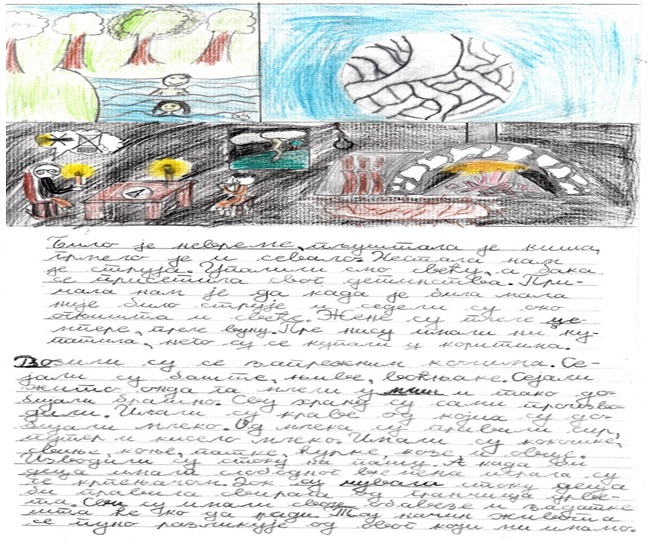 Било је невреме, пљуштала је киша,
грмело је и севало. Нестала нам
је струја. Упалили смо свећу, а бака
се присетила свог детињства. При-
чала нам је да када је била мала
није било струје и седели су око
огњишта и свеће. Жене су плеле це-
мпере, преле вуну. Пре нису имали ни ку-
патила, него су се купали у коритима.
Возили су се запрежним колима. Се-
јали су баште, њиве, воћњаке. Сејали
жито онда га млели у млин и тако до-
бијали брашно. Сву храну су сами произво-
дили. Имали су краве од којих су до-
бијали млеко. Од млека су правили сир,
путер и кисело млеко. Имали су кокошке,
свиње, коње, патке, ћурке, козе и овце.
Изводили су стоку на пашу. А када би
деца имала слободног времена играла су
се крпењачом. Док су чували стоку деца
би правила свирала од гранчица дрве-
та. Сви су имали своје обавезе и задатке
шта ће ко да ради. Тај начин живота
се пуно разликује од овог који ми имамо.